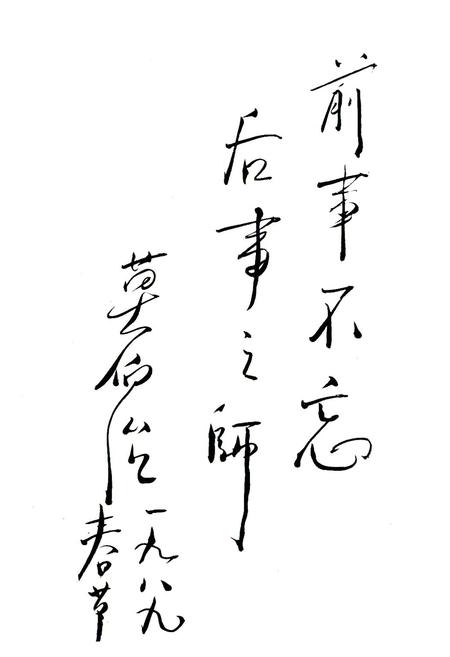 前事不忘
后事之師
莫伯治
一九八九
春节